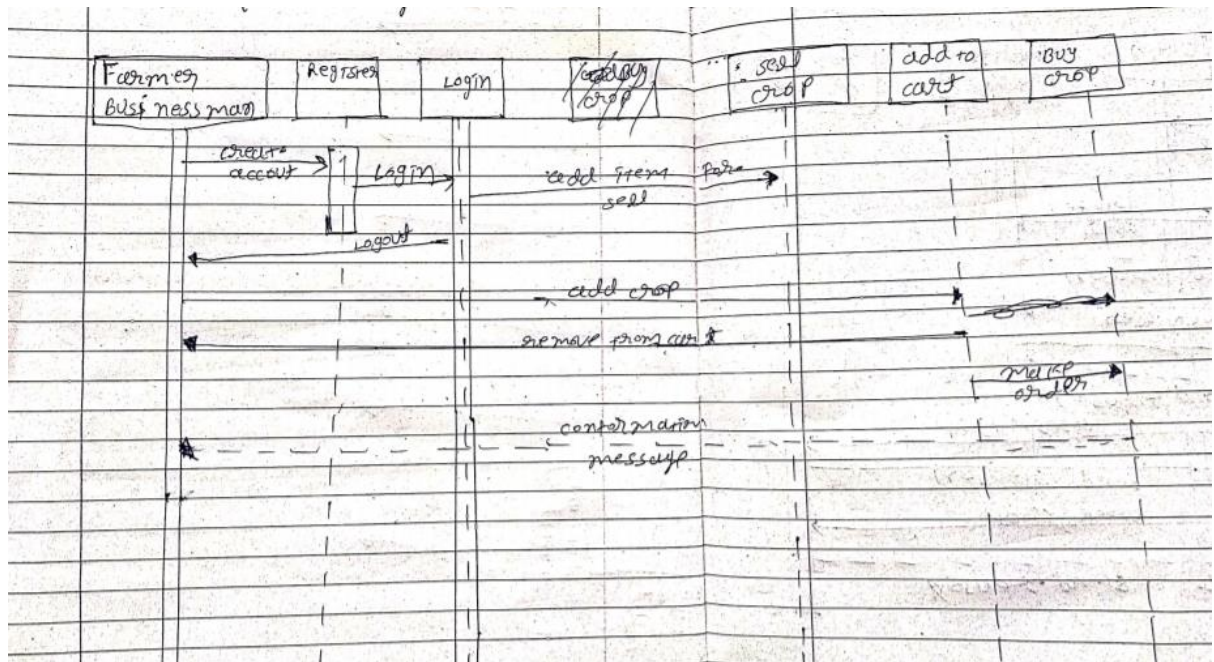 Farmer
Businessman
Register
Login
Buy
crop
sell
crop
add to
cart
Buy
crop
create
accout
Login
add item for
sell
Logout
add crop
remove from cart
make
order
confermation
message